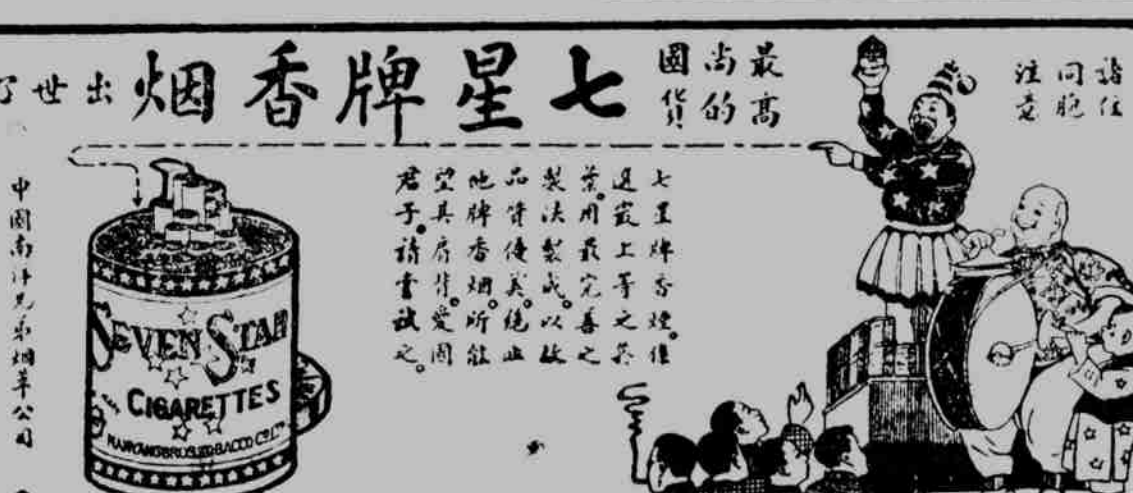 諸位
同胞
注意
最高
尚的
國貨
七星牌香烟
出世了
七星牌香煙。係
選最上等之菸
葉。用最完善之
製法製成。以故
品質優美。絕非
他牌香烟。所能
望其肩背。愛國
君子。請嘗試之。
SEVEN STAR
CIGARETTES
NANYANG BROS. TOBACCO Co. LTD.
中國南洋兄弟烟草公司